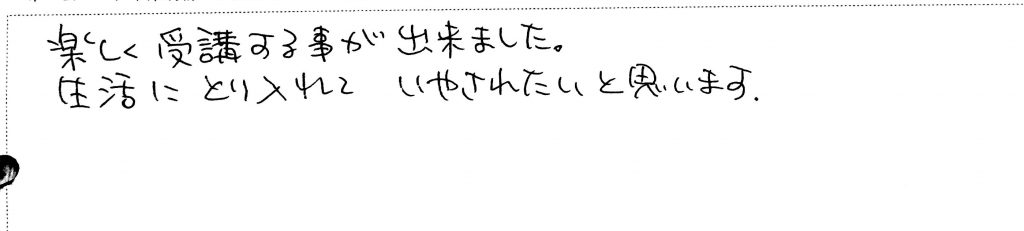 楽しく受講する事が出来ました。
生活にとり入れて いやされたいと思います.